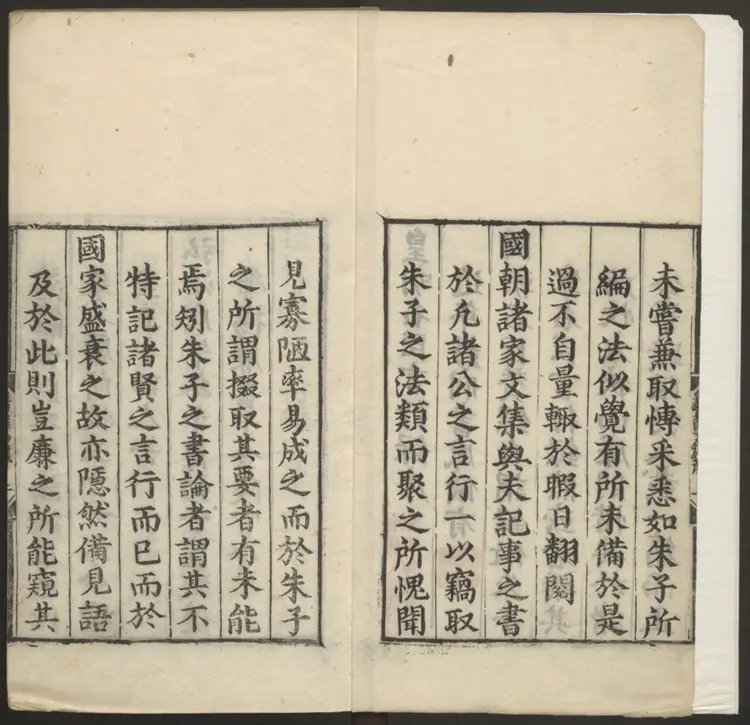 未嘗兼取愽采悉如朱子所
編之法似覺有所未備於是
過不自量輙於暇日翻閱
國朝諸家文集與夫記事之書
於凢諸公之言行一以竊取
朱子之法類而聚之所愧聞
見寡陋率易成之而於朱子
之所謂掇取其要者有未能
焉矧朱子之書論者謂其不
特記諸賢之言行而已而於
國家盛衰之故亦隱然備見語
及於此則豈廉之所能窺其